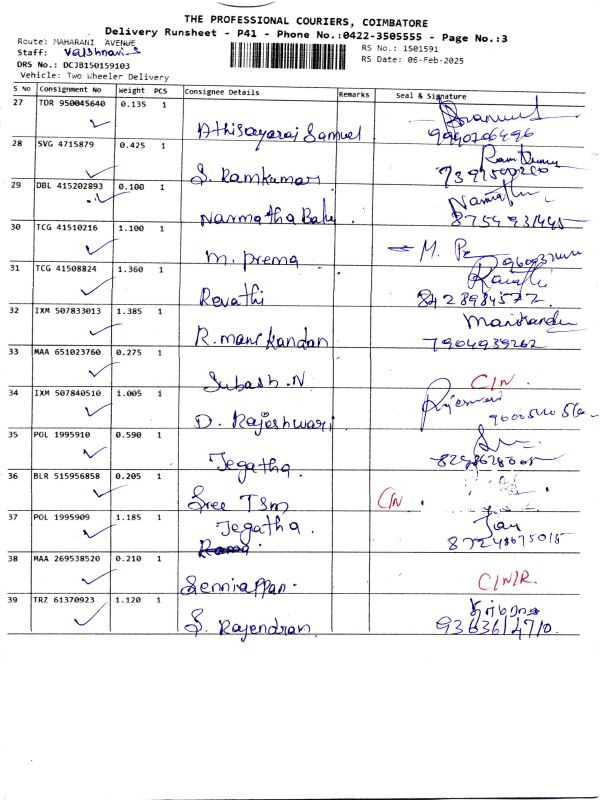 THE PROFESSIONAL COURIERS, COIMBATORE
Delivery Runsheet - P41 - Phone No.:0422-3505555 - Page No.:3
Route: MAHARANI AVENUE
Staff: Vaishnavi S
RS No.: 1501591
DRS No.: DCJB150159103
RS Date: 06-Feb-2025
Vehicle: Two Wheeler Delivery
S No Consignment No Weight PCS Consignee Details Remarks Seal & Signature
27 TDR 950045640 0.135 1
Athisayaraj Samuel
28 SVG 4715879 0.425 1
S. Ramkumar Ram Kumar
29 DBL 415202893 0.100 1
Narmatha Balu
30 TCG 41510216 1.100 1
M. Prema
31 TCG 41508824 1.360 1
Revathi 8428984577
32 IXM 507833013 1.385 1
R. Manikandan Manikandan
7904939262
33 MAA 651023760 0.275 1
Subash .N C/N
34 IXM 507840510 1.005 1
D. Rajeshwari
35 POL 1995910 0.590 1
Jegatha
36 BLR 515956858 0.205 1
Sree TSM C/N
37 POL 1995909 1.185 1
Jegatha. 87248675015
38 MAA 269538520 0.210 1
Senniappan. C/N/R.
39 TRZ 61370923 1.120 1
S. Rajendran. 9363614710.